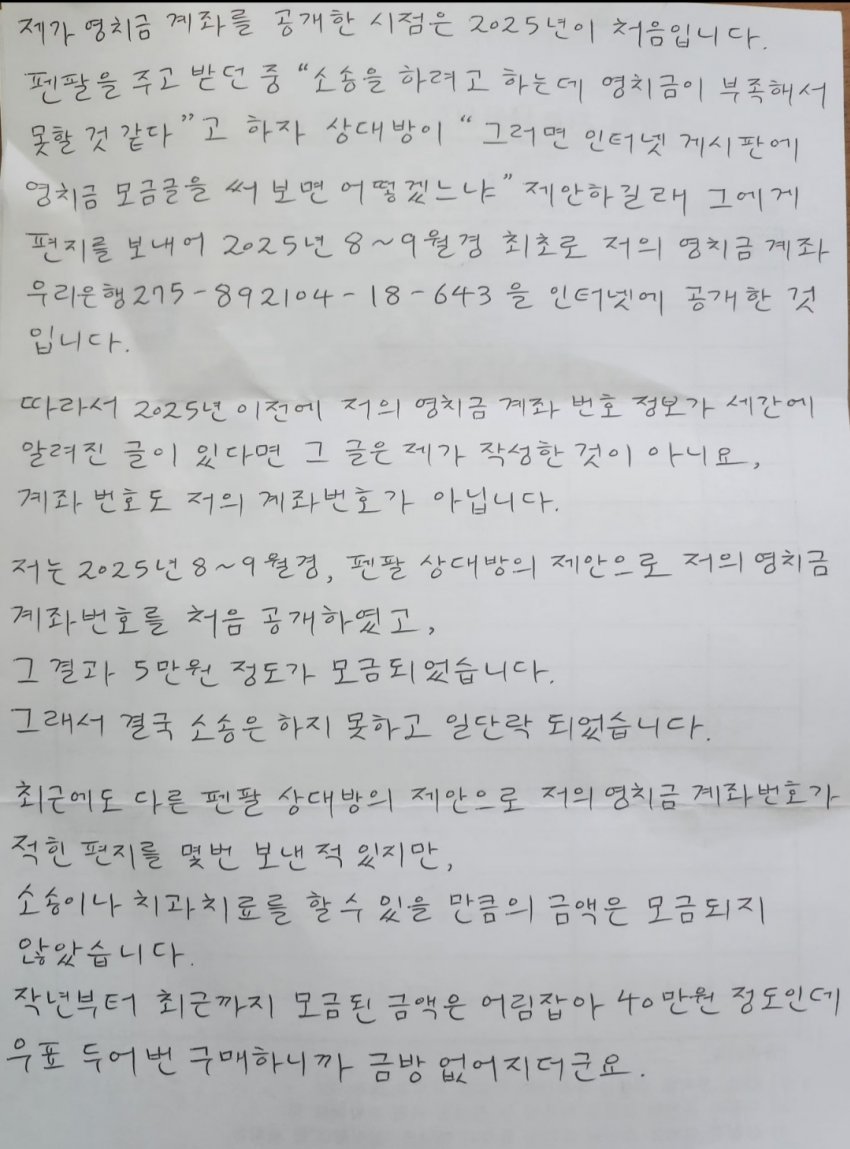 제가 영치금 계좌를 공개한 시점은 2025년이 처음입니다.
펜팔을 주고 받던 중 "소송을 하려고 하는데 영치금이 부족해서
못할 것 같다"고 하자 상대방이 "그러면 인터넷 게시판에
영치금 모금글을 써 보면 어떻겠느냐" 제안하길래 그에게
편지를 보내어 2025년 8~9월경 최초로 저의 영치금 계좌
우리은행 275-892104-18-643 을 인터넷에 공개한 것
입니다.
따라서 2025년 이전에 저의 영치금 계좌 번호 정보가 세간에
알려진 글이 있다면 그 글은 제가 작성한 것이 아니요,
계좌 번호도 저의 계좌번호가 아닙니다.
저는 2025년 8~9월경, 펜팔 상대방의 제안으로 저의 영치금
계좌번호를 처음 공개하였고,
그 결과 5만원 정도가 모금되었습니다.
그래서 결국 소송은 하지 못하고 일단락 되었습니다.
최근에도 다른 펜팔 상대방의 제안으로 저의 영치금 계좌번호가
적힌 편지를 몇번 보낸 적 있지만,
소송이나 치과치료를 할 수 있을 만큼의 금액은 모금되지
않았습니다.
작년부터 최근까지 모금된 금액은 어림잡아 40만원 정도인데
우표 두어번 구매하니까 금방 없어지더군요.